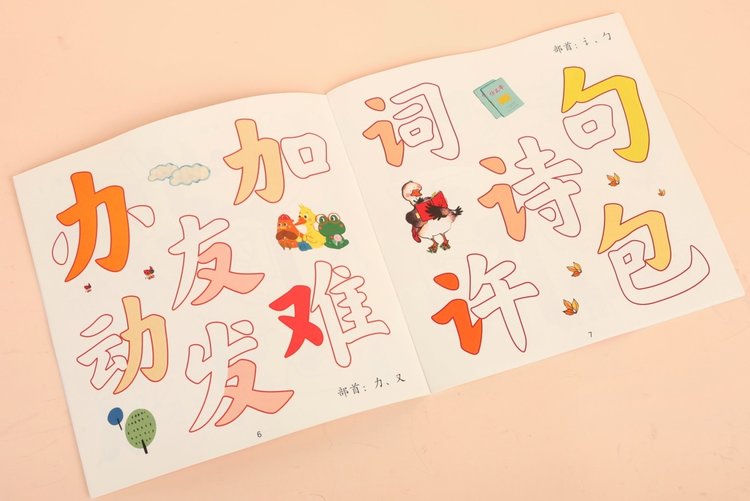 办
加
友
动
发
难
部首：力、又
6
部首：讠、勹
词
句
诗
包
许
7